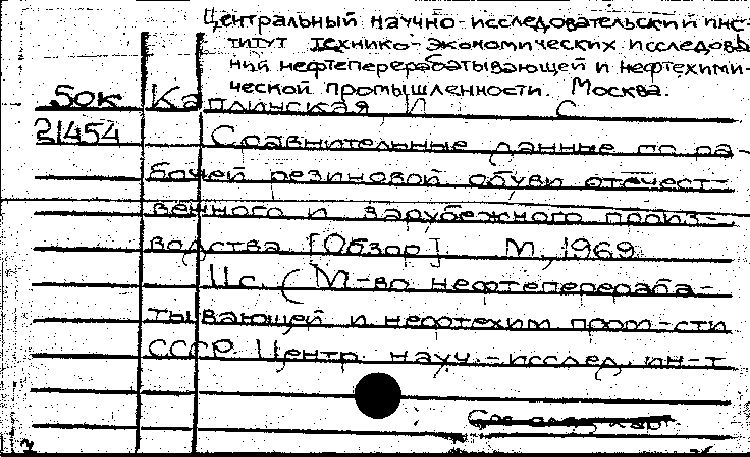 Центральный научно-исследовательский инс-
титут технико-экономических исследова
ний нефтеперерабатывающей и нефтехими-
ческой промышленности. Москва.
Бок Каплинская, И С
21454 Сравнительные данные по ра-
бочей резиновой обуви отечест-
венного и зарубежного произ-
водства [Обзор]. М., 1969
11с. (М-во нефтеперераба-
тывающей и нефтехим пром-сти
СССР Центр. науч.-исслед. ин-т